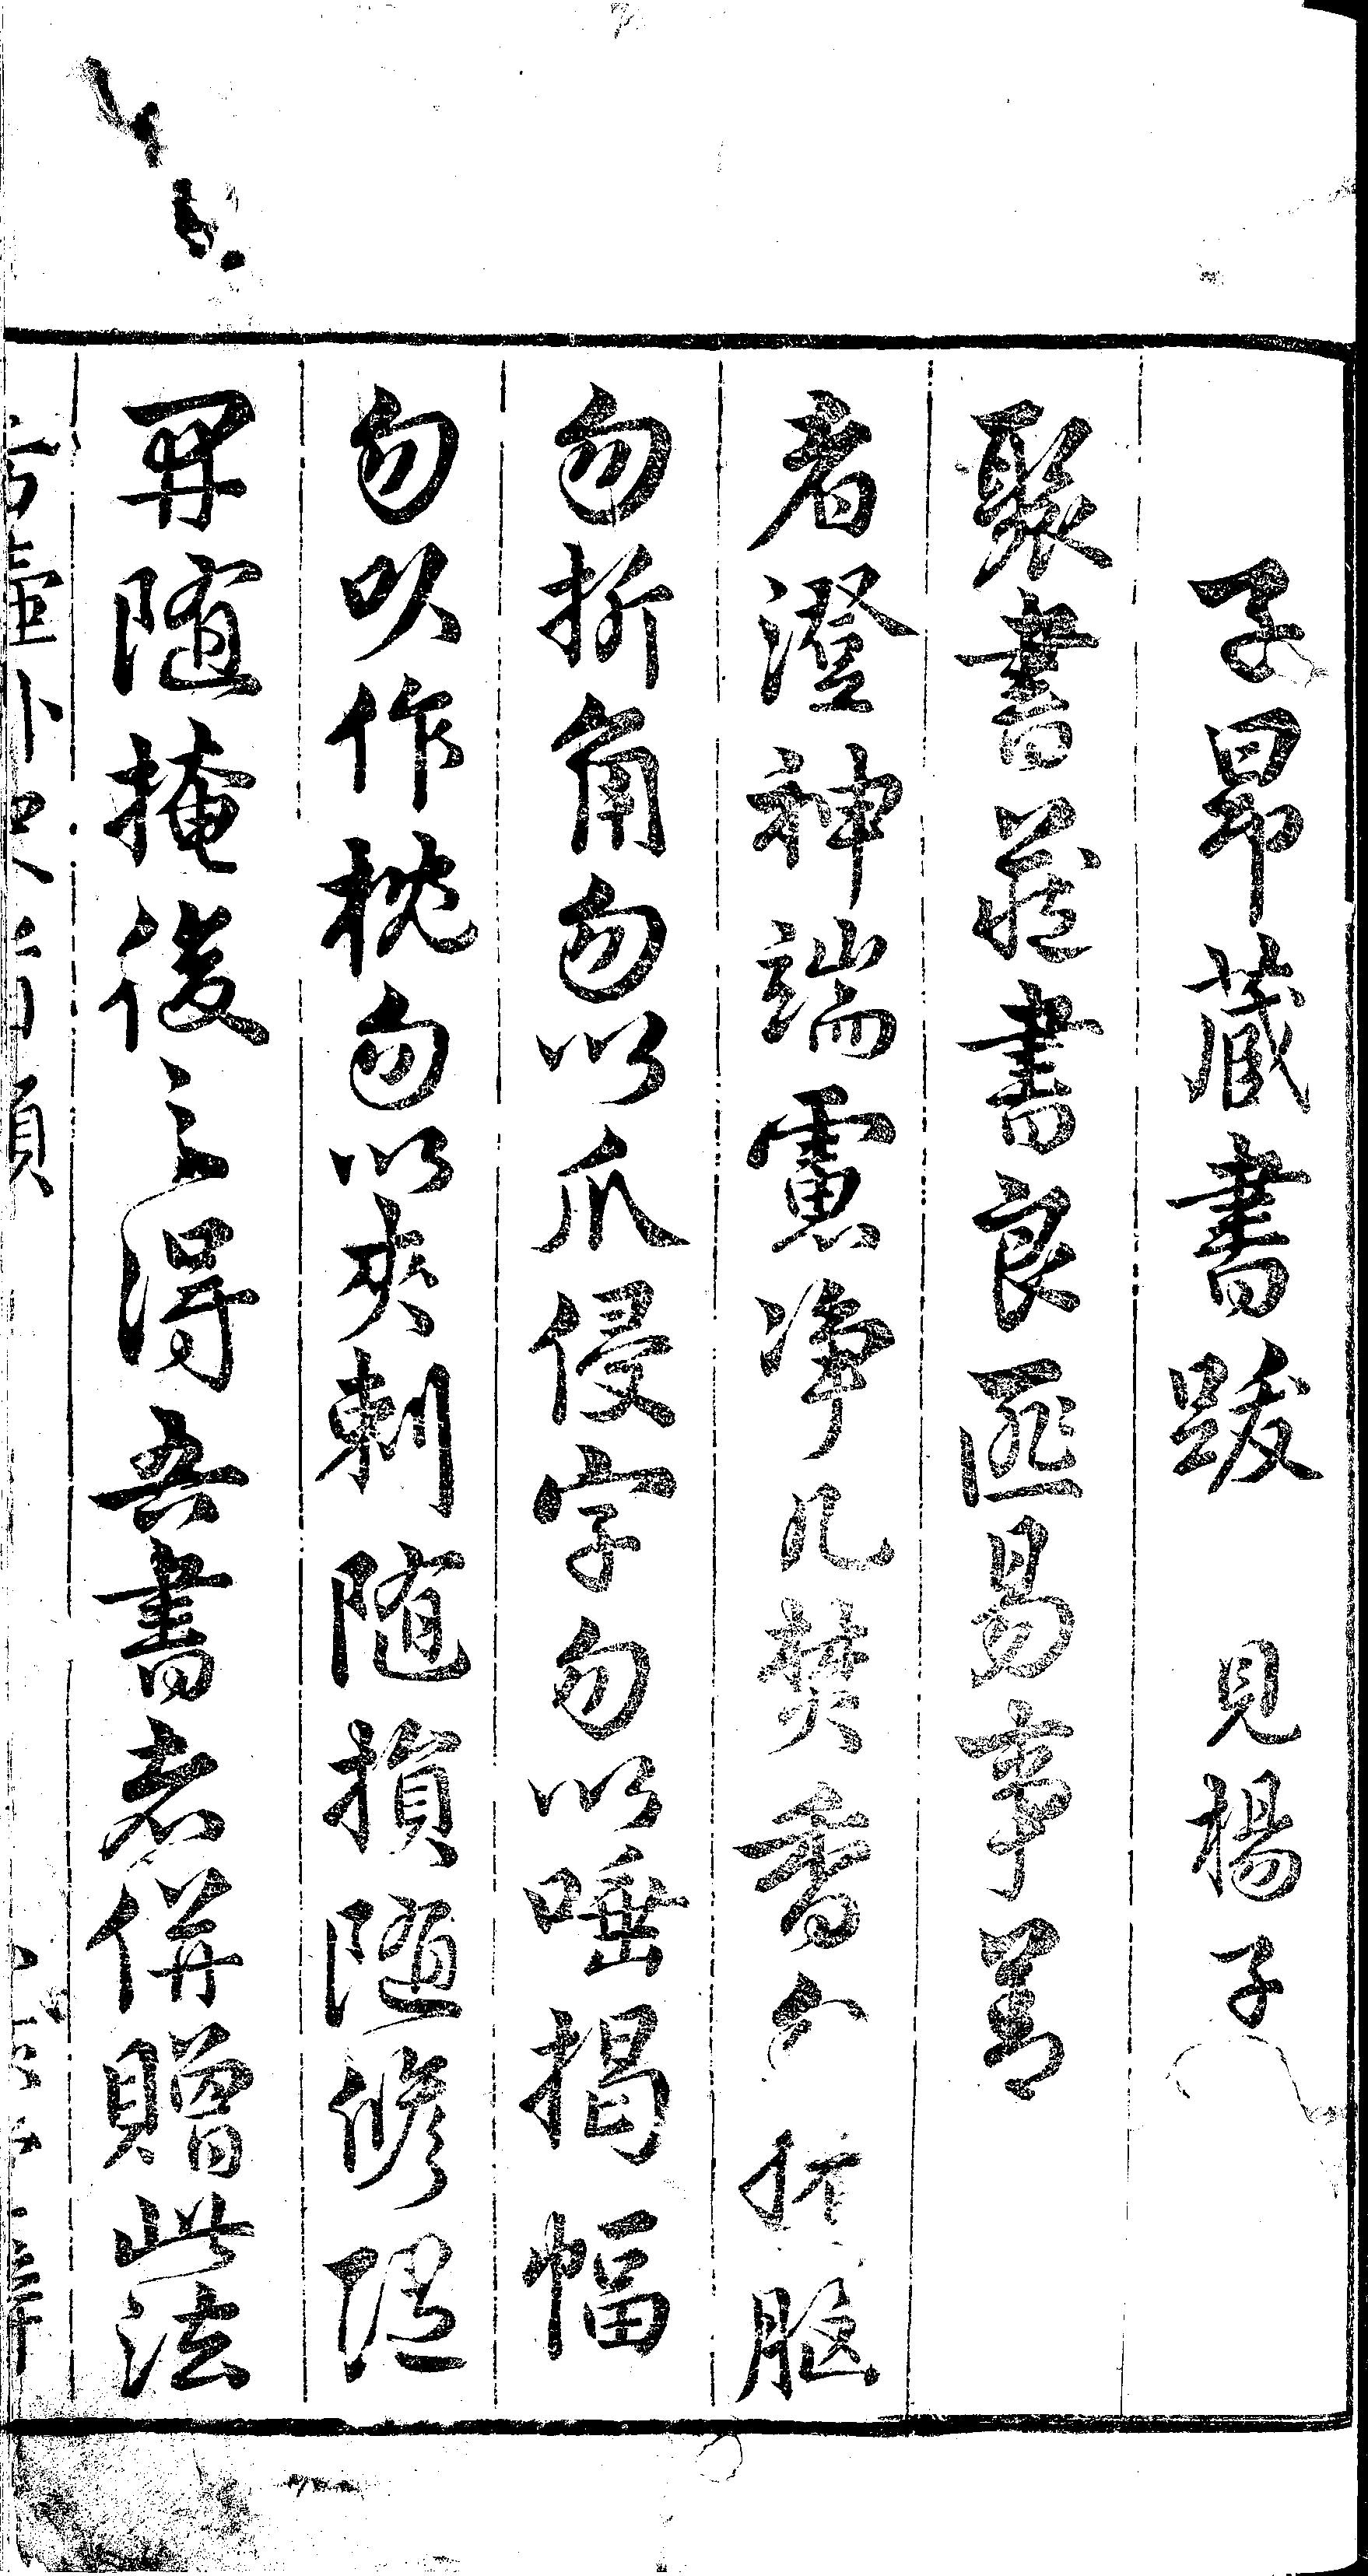 子昂藏書跋 見楊子
聚書藏書良匪易事善
者澄神端慮净几焚香勿腦
勿折角勿以爪侵字勿以唾揭幅
勿以作枕勿以夾刺隨損隨修隨
開隨掩後之得吾書者併贈此法